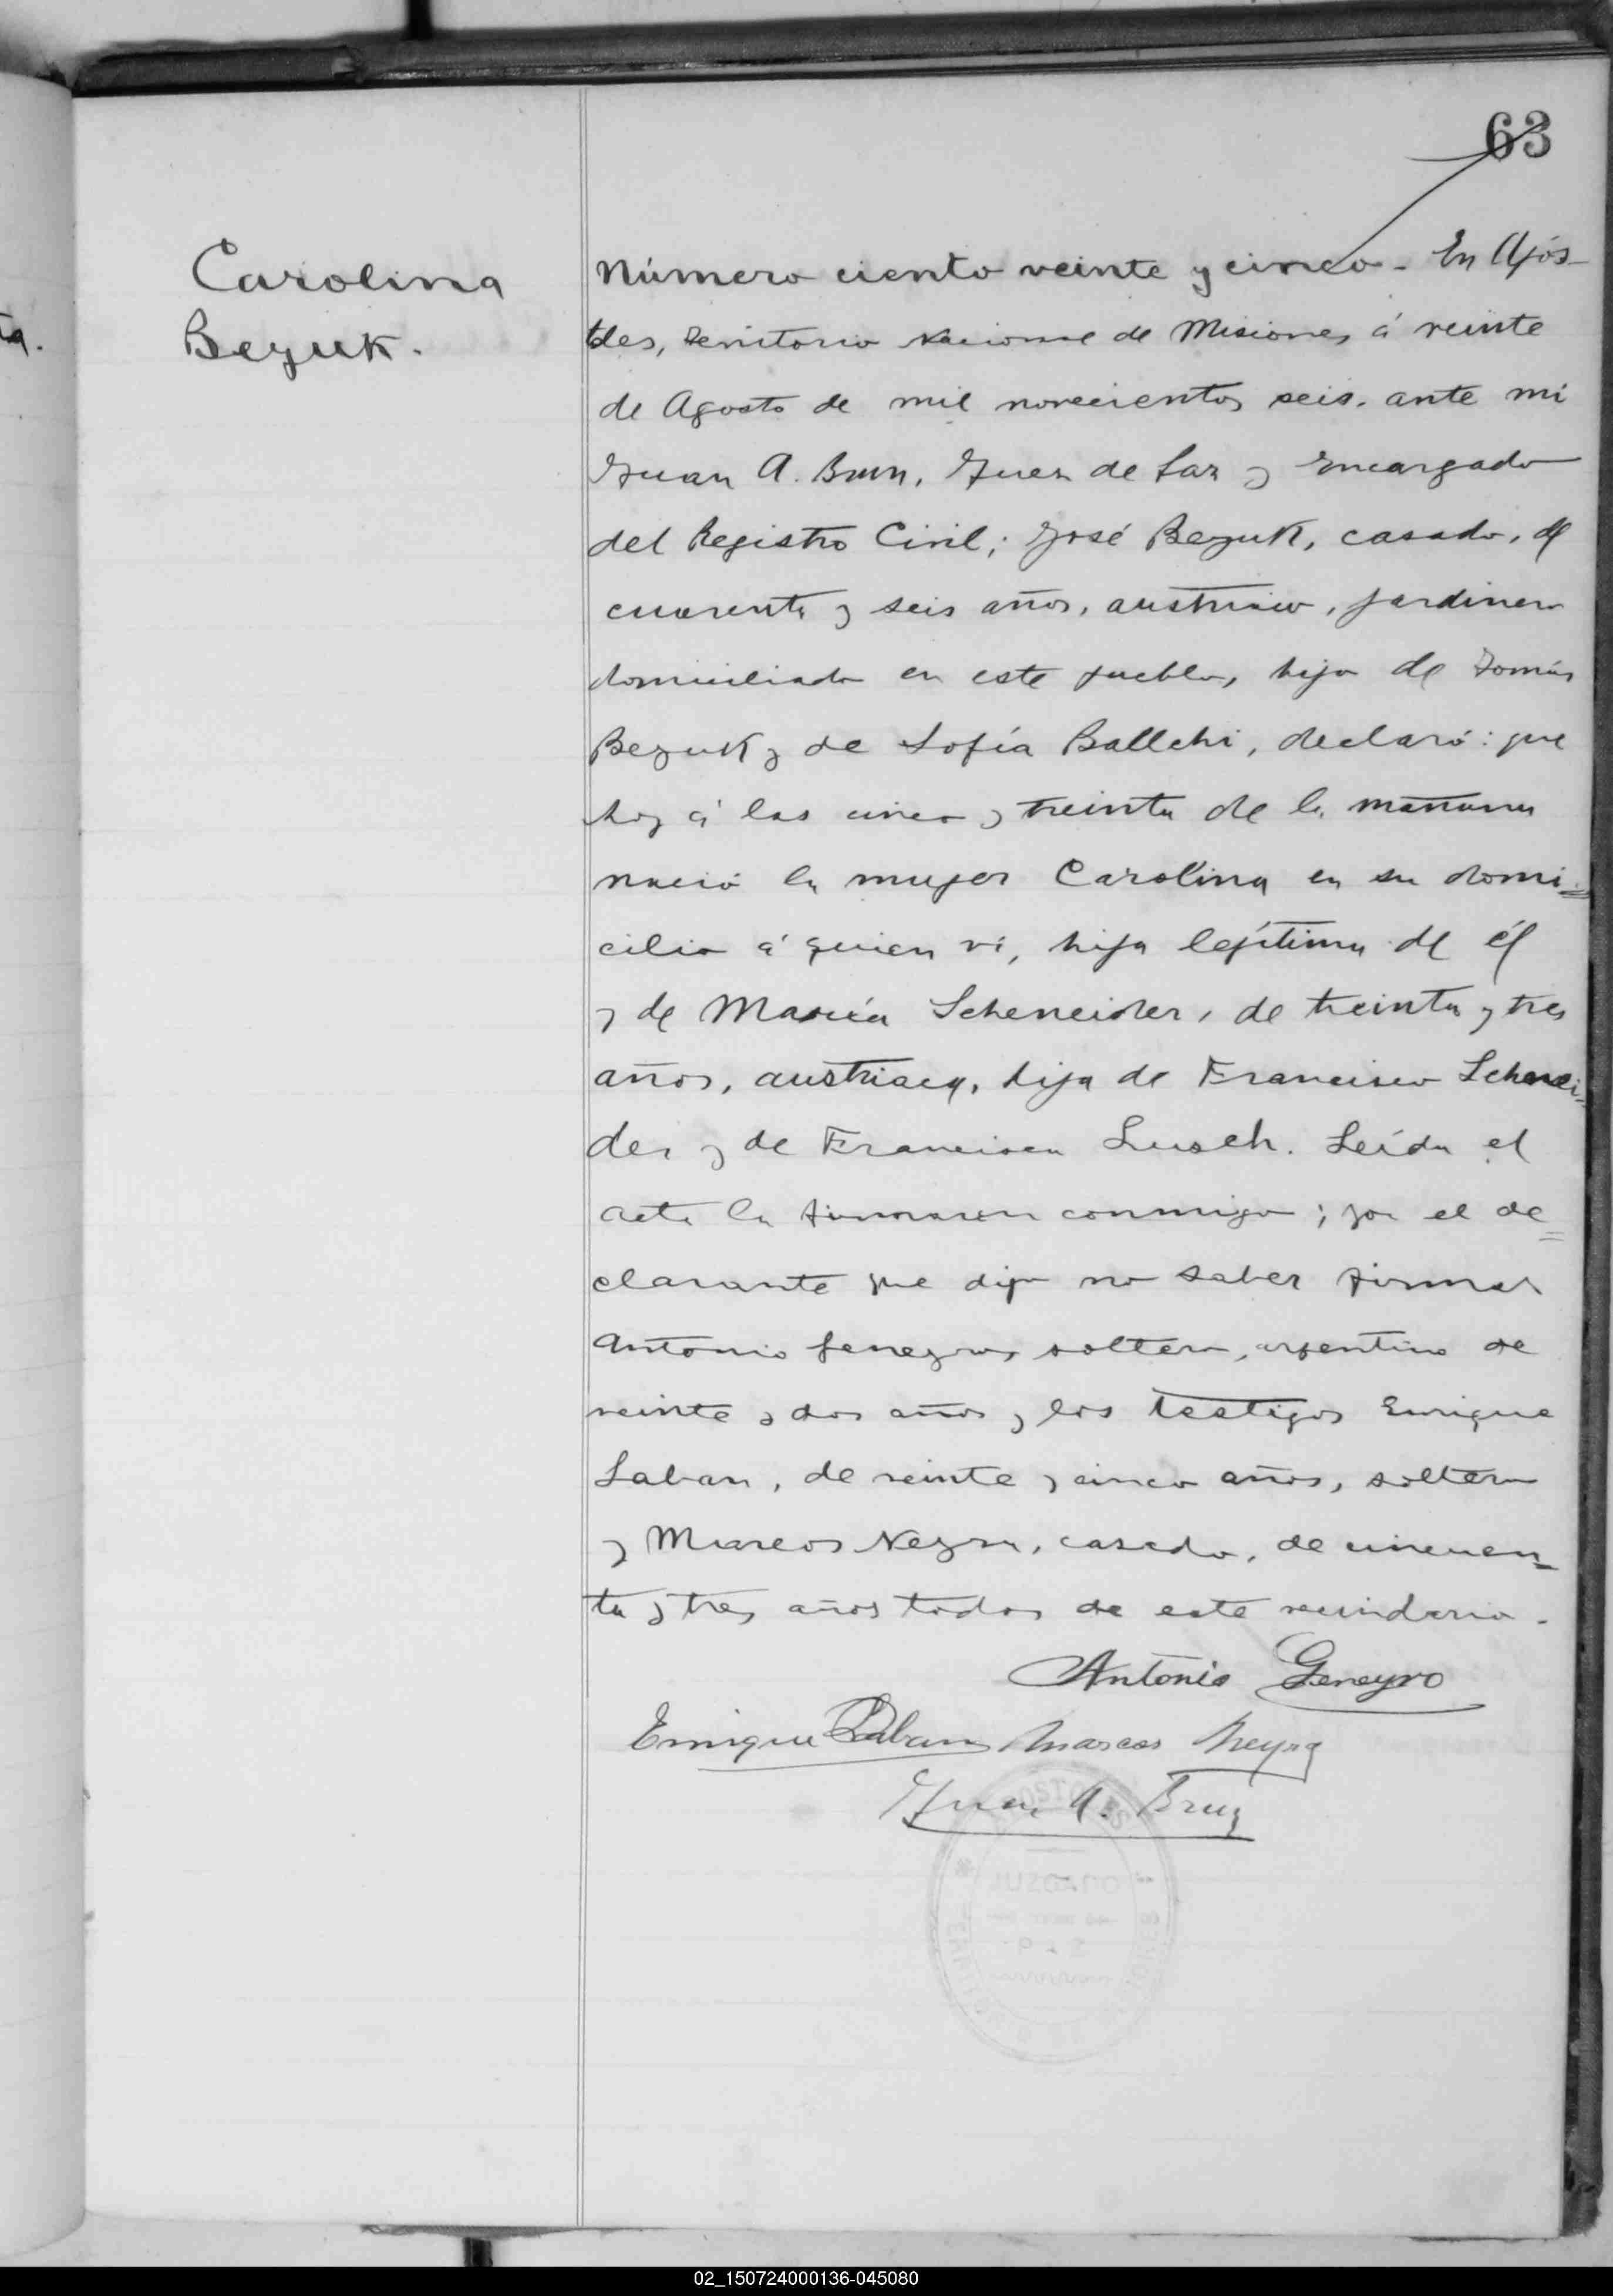 63
Carolina
Bezuk.
Número ciento veinte y cinco. En Após-
toles, Territorio Nacional de Misiones á veinte
de Agosto de mil novecientos seis. ante mi
Juan A. Brun, Juez de Paz y Encargado
del Registro Civil; José Bezuk, casado, de
cuarenta y seis años, austriaco, jardinero
domiciliado en este pueblo, hijo de Tomás
Bezuk y de Sofía Ballchi, declaró: que
hoy á las cinco y treinta de la mañana
nació la mujer Carolina en su domi=
cilio á quien ví, hija legítima de él
y de María Scheneider, de treinta y tres
años, austriaca, hija de Francisco Schenei=
der y de Francisca Lusch. Leída el
acta la firmaron conmigo; por el de=
clarante que dijo no saber firmar
Antonio Geneyro, soltero, argentino de
veinte y dos años y los testigos Enrique
Laban, de veinte y cinco años, soltero
y Marcos Neyra, casado, de cincuen=
ta y tres años todos de este vecindario.
Antonio Geneyro
Enrique Laban Marcos Neyra
Juan A. Brun
02_150724000136-045080